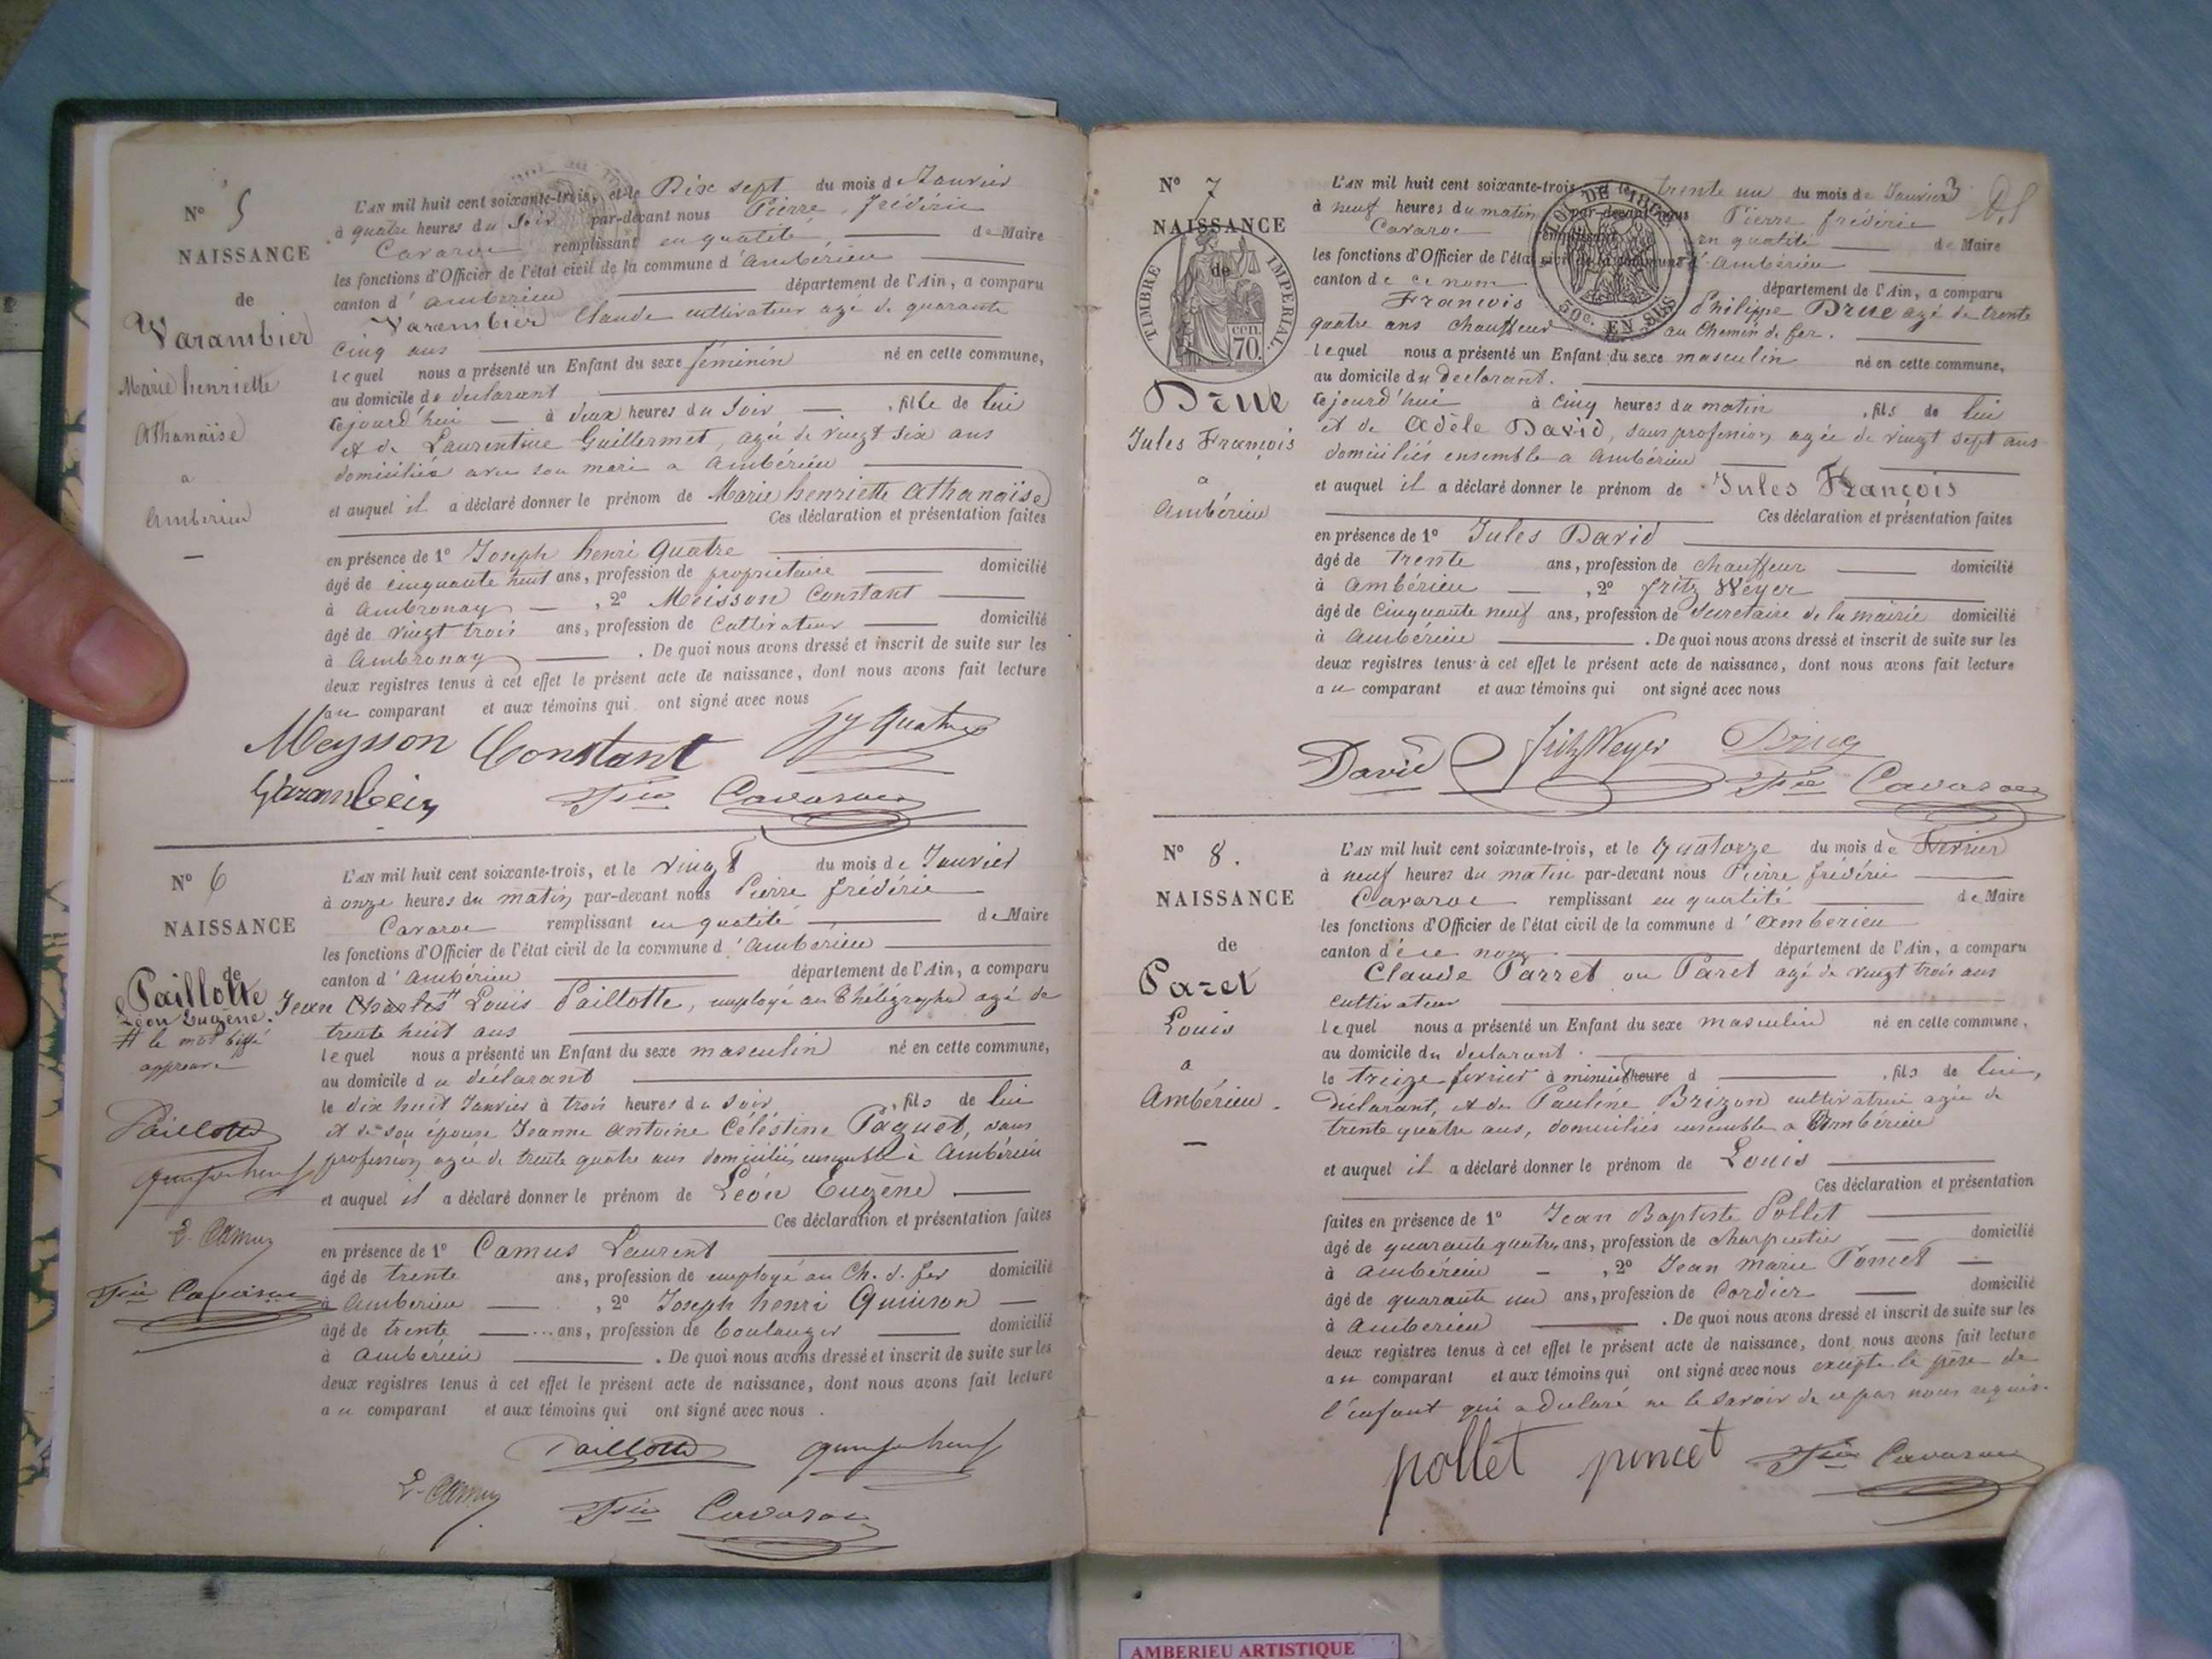 N° 5
NAISSANCE
de
Varambier
Marie henriette
Athanaïse
a
Ambérieu
L'AN mil huit cent soixante-trois, et le Dix sept du mois de Janvier
à quatre heures du Soir par-devant nous Pierre frédéric
Cavaroc remplissant en qualité de Maire
les fonctions d'Officier de l'état civil de la commune d'Ambérieu
canton d'Ambérieu département de l'Ain, a comparu
Varambier Claude cultivateur agé de quarante
cinq ans
lequel nous a présenté un Enfant du sexe féminin né en cette commune,
au domicile du declarant
cejourd'hui à deux heures du Soir , fille de lui
et de Laurentine Guillermet, agée de vingt six ans
domiciliée avec son mari a Ambérieu
et auquel il a déclaré donner le prénom de Marie henriette athanaïse
Ces déclaration et présentation faites
en présence de 1° Joseph henri Quatre
âgé de cinquante huit ans, profession de propriétaire domicilié
à Ambronay , 2° Meisson Constant
âgé de vingt trois ans, profession de Cultivateur domicilié
à Ambronay . De quoi nous avons dressé et inscrit de suite sur les
deux registres tenus à cet effet le présent acte de naissance, dont nous avons fait lecture
au comparant et aux témoins qui ont signé avec nous
Meysson Constant Quatre
Varambier Fric Cavaroc
N° 6
NAISSANCE
de
Paillotte
Léon Eugène.
# le mot biffé
approuvé
Paillotte
L. Camus
Fric Cavaroc
L'AN mil huit cent soixante-trois, et le vingt du mois de Janvier
à onze heures du matin par-devant nous Pierre frédéric
Cavaroc remplissant en qualité de Maire
les fonctions d'Officier de l'état civil de la commune d'Ambérieu
canton d'Ambérieu département de l'Ain, a comparu
Jean Charles # Louis Paillotte, employé au Thélégraphe agé de
trente huit ans
lequel nous a présenté un Enfant du sexe masculin né en cette commune,
au domicile du déclarant
le dix huit Janvier à trois heures du Soir , fils de lui
et de son épouse Jeanne Antoine Céléstine Paquet, sans
profession, agée de trente quatre ans domiciliés ensemble à Ambérieu
et auquel il a déclaré donner le prénom de Léon Eugène
Ces déclaration et présentation faites
en présence de 1° Camus Laurent
âgé de trente ans, profession de employé au Ch. d. fer domicilié
à Ambérieu , 2° Joseph henri
âgé de trente ans, profession de boulanger domicilié
à Ambérieu . De quoi nous avons dressé et inscrit de suite sur les
deux registres tenus à cet effet le présent acte de naissance, dont nous avons fait lecture
au comparant et aux témoins qui ont signé avec nous .
Paillotte
L. Camus Fric Cavaroc
N° 7
NAISSANCE
de
TIMBRE IMPERIAL
70.
Drue
Jules François
a
Ambérieu
50c. EN SUS
L'AN mil huit cent soixante-trois et le trente un du mois de Janvier
à neuf heures du matin par-devant nous Pierre frédéric
Cavaroc remplissant en qualité de Maire
les fonctions d'Officier de l'état civil de la commune d'Ambérieu
canton de ce nom département de l'Ain, a comparu
François Philippe Drue agé de trente
quatre ans chauffeur au Chemin de fer.
lequel nous a présenté un Enfant du sexe masculin né en cette commune,
au domicile du declarant.
cejourd'hui à cinq heures du matin , fils de lui
et de Adèle David, sans profession, agée de vingt sept ans
domiciliés ensemble a Ambérieu
et auquel il a déclaré donner le prénom de Jules François
Ces déclaration et présentation faites
en présence de 1° Jules David
âgé de trente ans, profession de chauffeur domicilié
à Ambérieu , 2° fritz Weyer
âgé de cinquante neuf ans, profession de Secretaire de la mairie domicilié
à Ambérieu . De quoi nous avons dressé et inscrit de suite sur les
deux registres tenus à cet effet le présent acte de naissance, dont nous avons fait lecture
au comparant et aux témoins qui ont signé avec nous
David fritz Weyer Drue
Fric Cavaroc
N° 8.
NAISSANCE
de
Paret
Louis
a
Ambérieu.
L'AN mil huit cent soixante-trois, et le Quatorze du mois de Février
à neuf heures du matin par-devant nous Pierre frédéric
Cavaroc remplissant en qualité de Maire
les fonctions d'Officier de l'état civil de la commune d'Ambérieu
canton de ce nom département de l'Ain, a comparu
Claude Parret ou Paret agé de vingt trois ans
cultivateur
lequel nous a présenté un Enfant du sexe masculin né en cette commune,
au domicile du declarant.
le treize février à minuit heure d , fils de lui,
déclarant, et de Pauline Brizon cultivatrice agée de
trente quatre ans, domiciliés ensemble a Ambérieu
et auquel il a déclaré donner le prénom de Louis
Ces déclaration et présentation
faites en présence de 1° Jean Baptiste Pollet
âgé de quarante quatre ans, profession de charpentier domicilié
à Ambérieu , 2° Jean Marie Poncet
âgé de quarante un ans, profession de Cordier domicilié
à Ambérieu . De quoi nous avons dressé et inscrit de suite sur les
deux registres tenus à cet effet le présent acte de naissance, dont nous avons fait lecture
au comparant et aux témoins qui ont signé avec nous excepté le père de
l'enfant qui a declaré ne le savoir de ce par nous requis.
pollet poncet Fric Cavaroc
AMBERIEU ARTISTIQUE